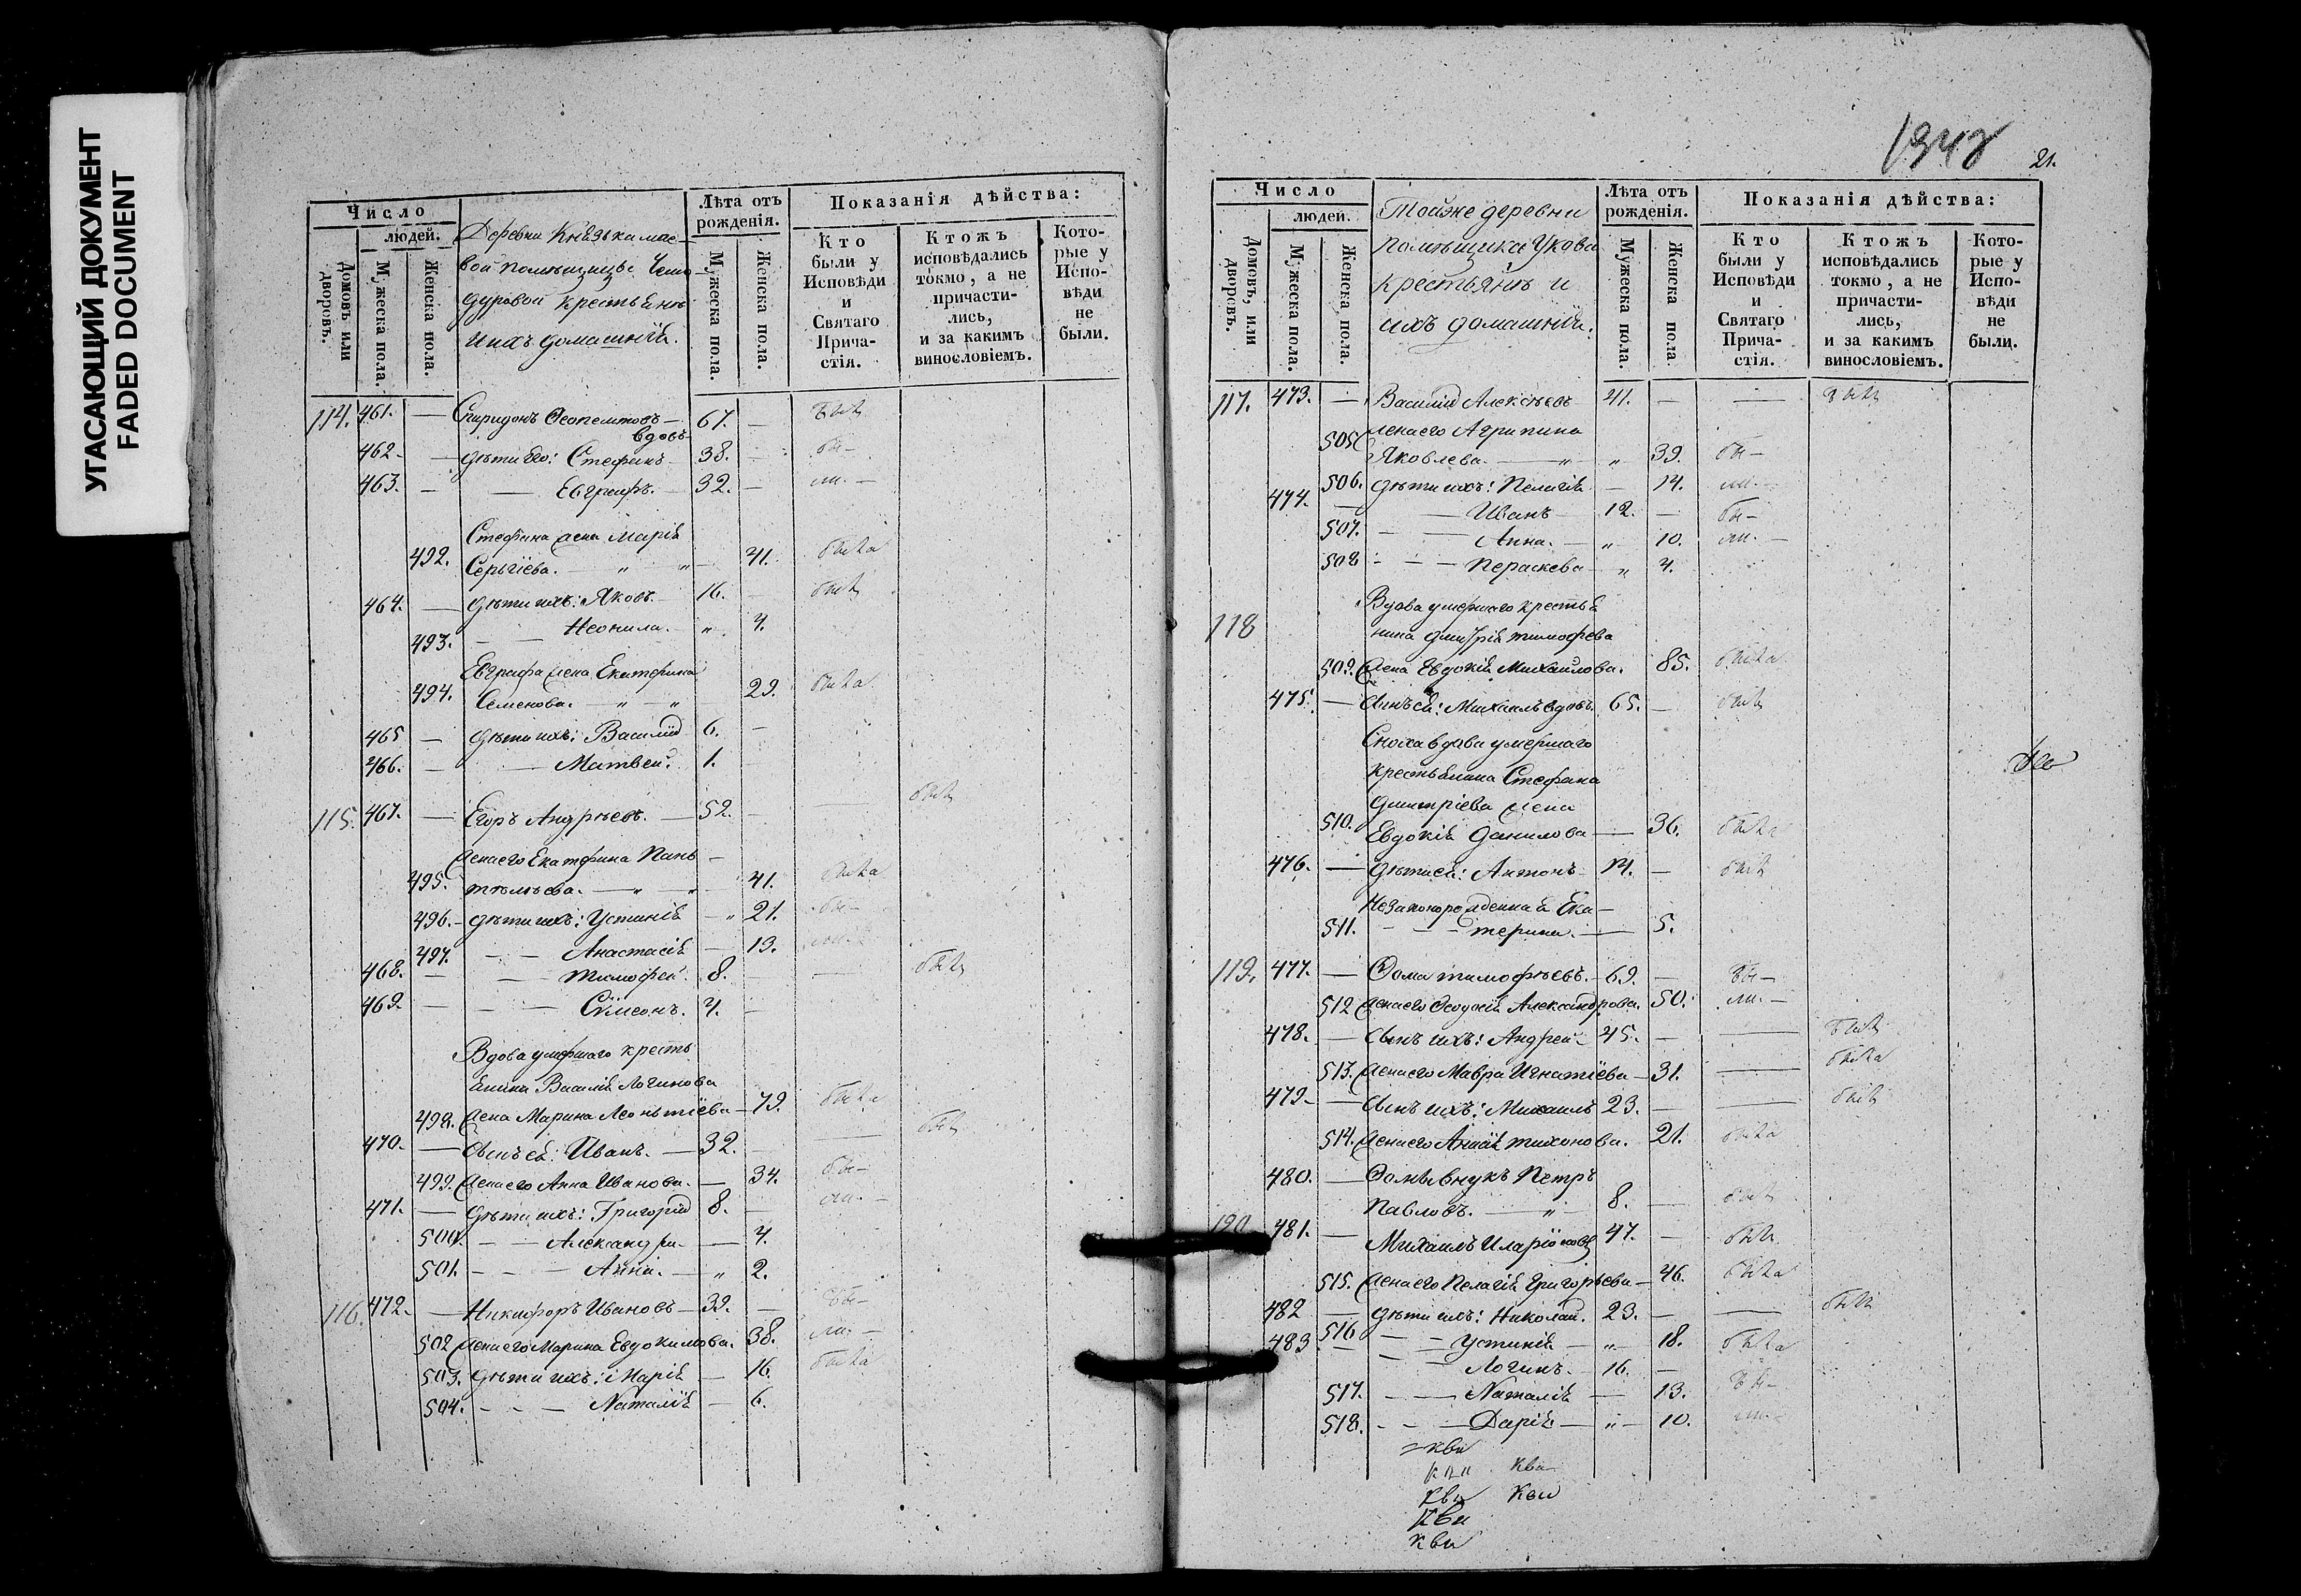 УГАСАЮЩИЙ ДОКУМЕНТ
FADED DOCUMENT
Число
людей.
Домовъ или дворовъ.
Мужеска пола.
Женска пола.
Деревни Князькамас-
вой помѣщицы
крестьянъ
и ихъ домашнїй.
Лѣта отъ рожденія.
Мужеска пола.
Женска пола.
Показанія дѣйства:
Кто были у Исповѣди и Святаго Прича-стія.
Ктожъ исповѣдались токмо, а не причасти-лись, и за какимъ винословіемъ.
Кото-рые у Испо-вѣди не были.
114. 461. — Спиридонъ — 67. — былъ
вдовъ
462 - — дѣти его: Стефанъ 38. — бы-
463. — — Евграфъ. 32. — ли. —
Стефана жена Марія
492. Сергіева. — „ „ — 41. была
464. — дѣти ихъ: Яковъ. 16. — былъ
493. — — Неонила. „ 4.
Евграфа жена Екатерина
494. Семенова. — „ — „ 29. была
465 — дѣти ихъ: Василій 6. —
466. — — Матвей. 1. —
115. 467. — Егоръ Андрѣевъ. — 52. — — былъ
жена его Екатерина Пань —
495. телѣева. — „ — „ — 41. была
496. - дѣти ихъ: Устинія — „ 21. бы-
497. — — Анастасія — 13. ли. -
468. — — Тимофей. 8. — — былъ
469. — — — Сѵмеонъ. 4. —
Вдова умершаго кресть
янина Василія Логинова
498. жена Марина Леонтіева — 79. была
470. — сынъ ея: Иванъ. — 32. — — былъ
499. жена его Анна Иванова. — 34. бы-
471. — дѣти ихъ: Григорій 8. — ли. -
500. — — Александра. — 4.
501. — — — Анна. — „ 2.
116. 472. — Никифоръ Ивановъ — 39. — бы-
502 жена его Марина Евдокимова. 38. ли. —
503. дѣти ихъ: Марія — 16. была
504. - - — Наталія — 6.
1948
21.
Число
людей.
Домовъ, или дворовъ.
Мужеска пола.
Женска пола.
Тойже деревни
помѣщика Укова
крестьянъ и
ихъ домашнїй.
Лѣта отъ рожденія.
Мужеска пола.
Женска пола
Показанія дѣйства:
Кто были у Исповѣди и Святаго Прича-стія.
Ктожъ исповѣдались токмо, а не причасти-лись, и за какимъ винословіемъ.
Кото-рые у Испо-вѣди не были.
117. 473. — Василій Алексѣевъ 41. — — былъ
жена его Агрипина
505 Яковлева. — „ — „ 39. бы —
506. дѣти ихъ: Пелагія — 14. ли. —
474. — — Иванъ 12. — бы —
507. - — Анна. — „ 10. ли. —
508 - - — Параскева — „ 4.
118 Вдова умершаго крестья
нина Дмитрія Тимофева
509. жена Евдокія Михайлова. 85. была
475. — сынъ ея: Михаилъ вдовъ. 65. — былъ
Сноха вдова умершаго
крестьянина Стефана
Дмитріева жена
510. Евдокія Данилова — 36. была
476. — дѣти ея: Антонъ 14. — былъ
Незаконорожденная Ека —
511. - - — терина. — 5.
119. 477. — Ѳома Тимофѣевъ. — 69. — бы —
512 жена его Ѳеодосія Александрова. 50. ли. —
478. — сынъ ихъ: Андрей — 45. — — былъ
513. жена его Мавра Игнатіева — 31. — была
479 - — сынъ ихъ: Михаилъ 23. — — былъ
514. жена его Тихонова. 21. была
480. — Ѳомы внукъ Петръ
Павловъ. — „ — 8. — былъ
120 481. — Михаилъ Иларіоновъ 47. — былъ
515. жена его Пелагія Григорьева — 46. была
482 — дѣти ихъ: Николай. 23. — — былъ
483. 516 — — Устинія — „ — 18. была
— Логинъ. — 16. —
517. - — Наталія — 13. бы —
518. - - — Дарія — „ — 10. ли. -
кви
кви кви
кви кви
кви
кви